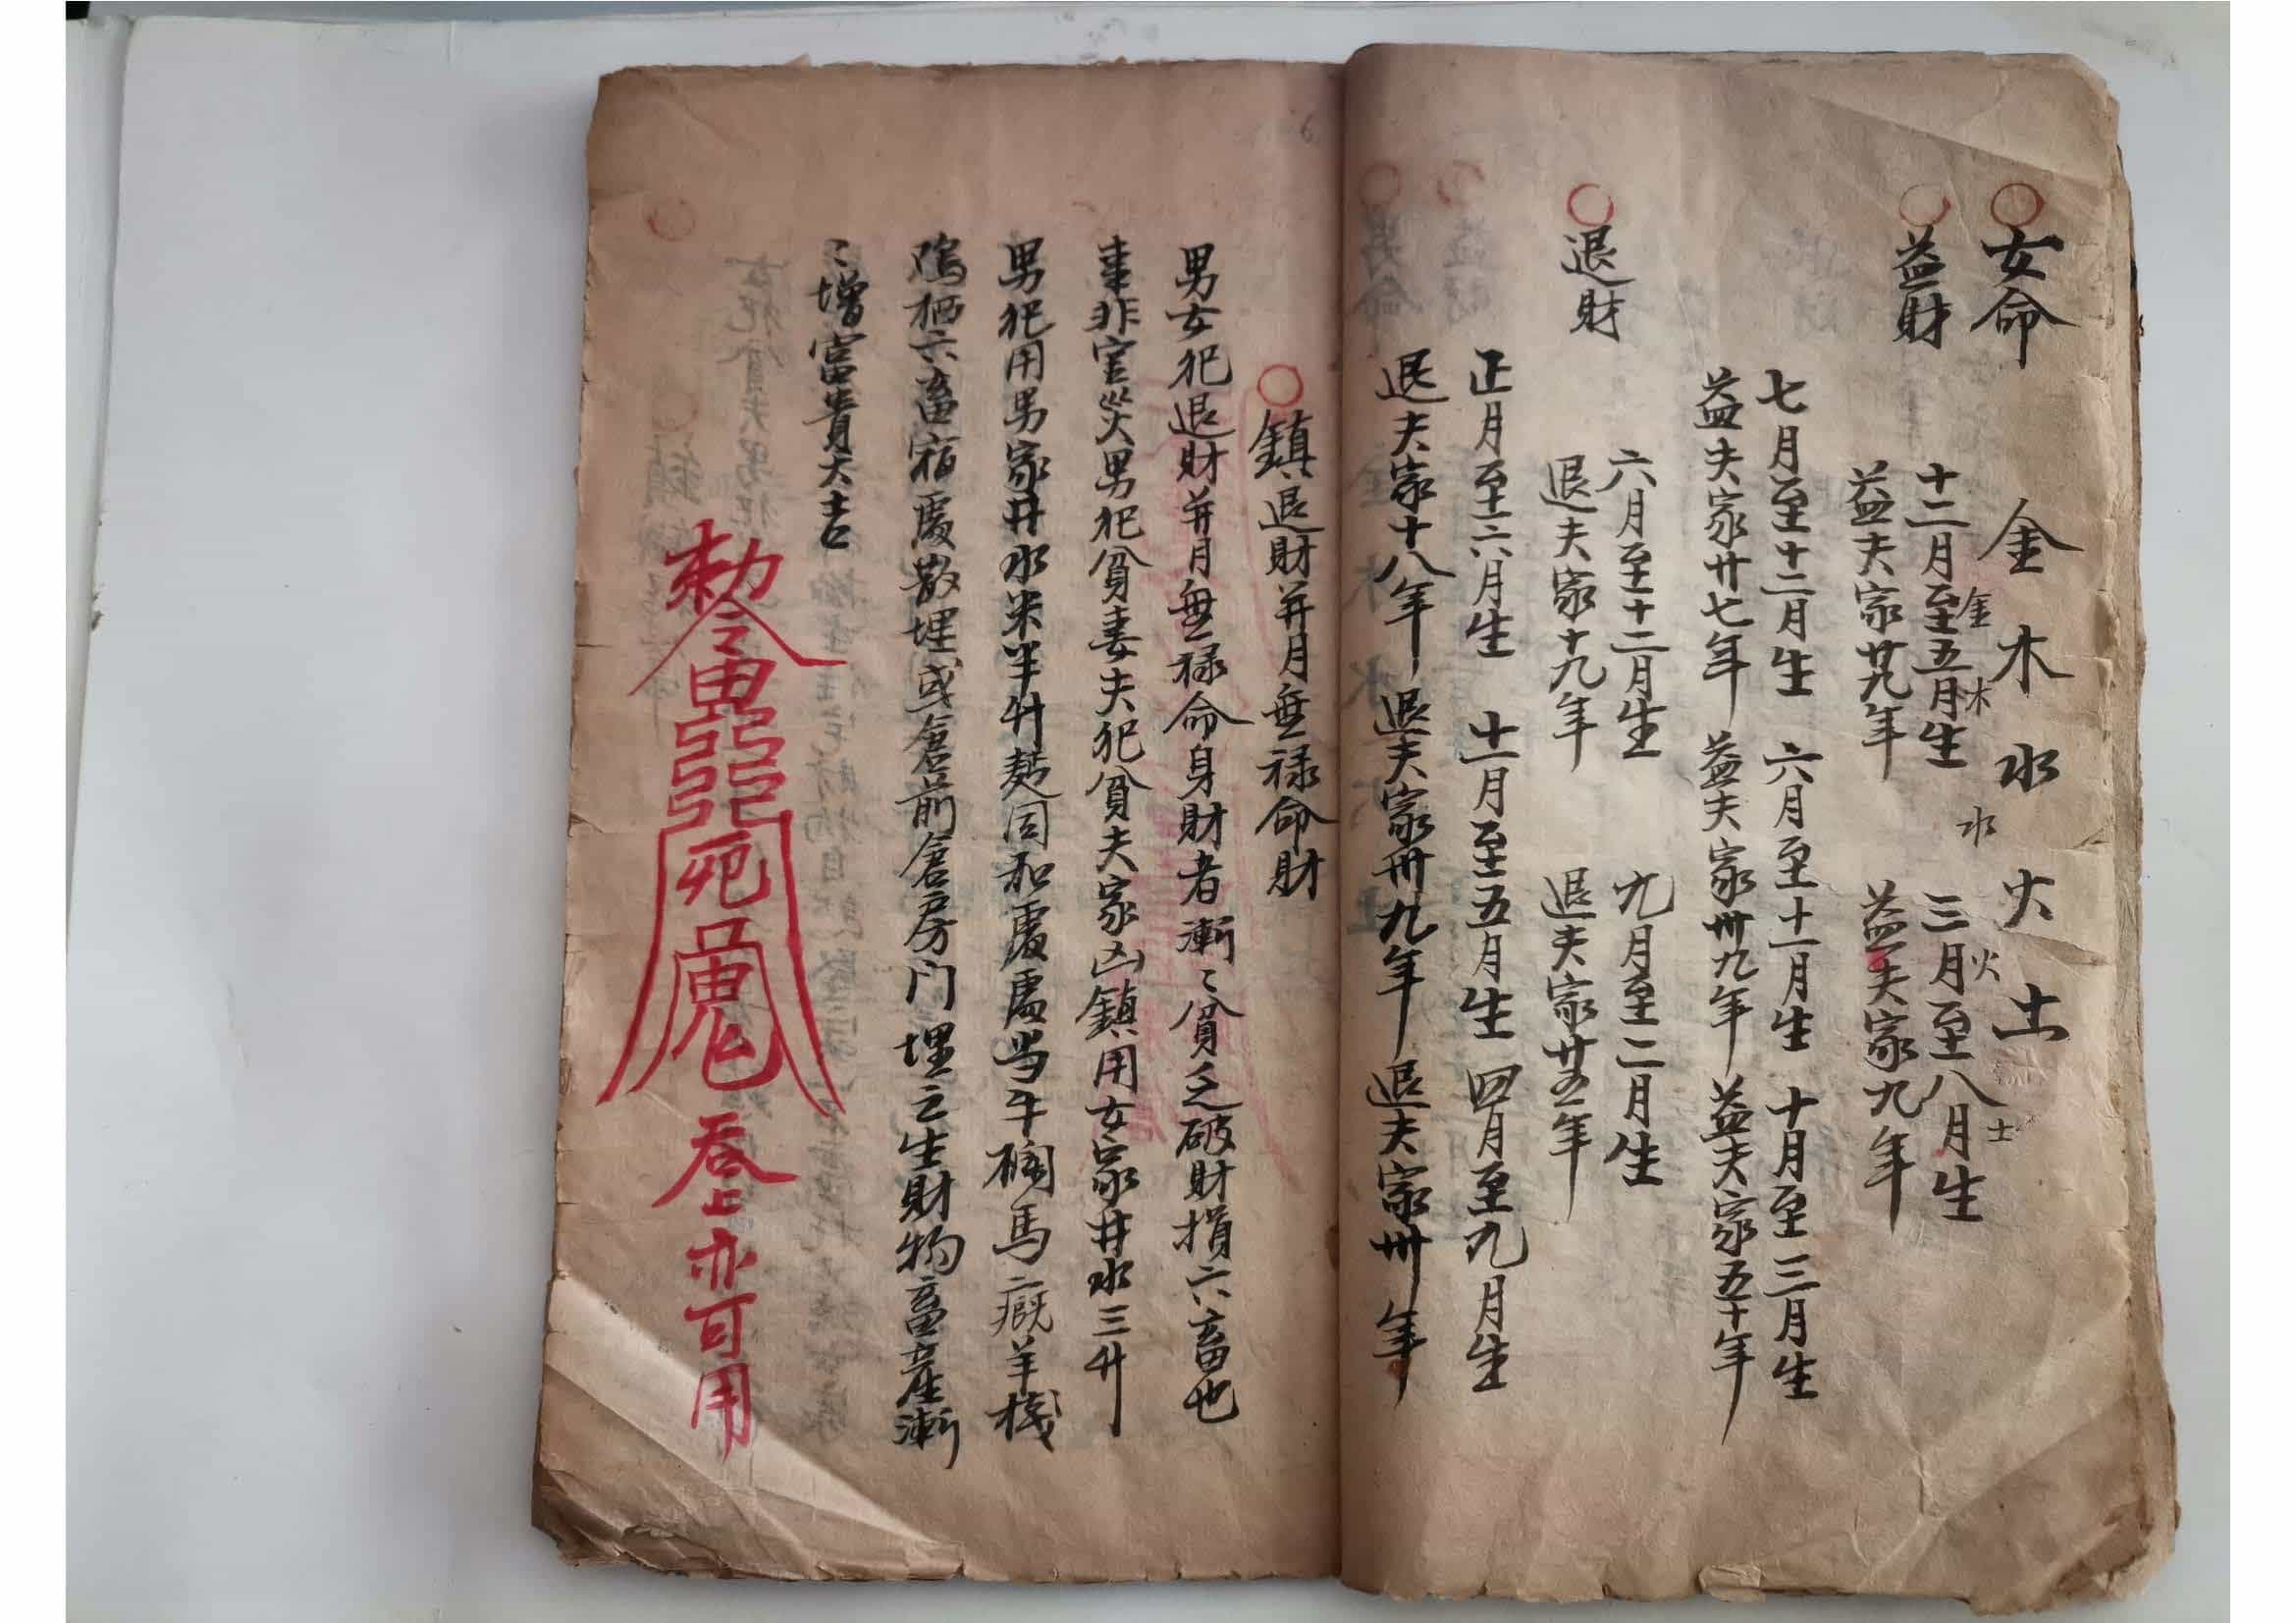 女命 金 木 水 火 土
益財
金 木 水 火 土
十二月至五月生 三月至八月生
益夫家廿九年 益夫家九年
七月至十二月生 六月至十一月生 十月至三月生
益夫家廿七年 益夫家卅九年 益夫家五十年
退財
六月至十二月生 九月至二月生
退夫家十九年 退夫家廿五年
正月至六月生 十一月至五月生 四月至九月生
退夫家十八年 退夫家卅九年 退夫家卅年
鎮退財并月無禄命財
男女犯退財并月無禄命身財者漸〻貧乏破財損六畜也
事非官災男犯貧妻夫犯貧夫家凶鎮用女家井水三升
男犯用男家井水米半升麩同和處處当牛欄馬廐羊棧
鸡栖六畜宿處散埋或倉前倉房門埋之生財物畜産漸
〻增富貴大吉
勅令
死
吞上亦可用